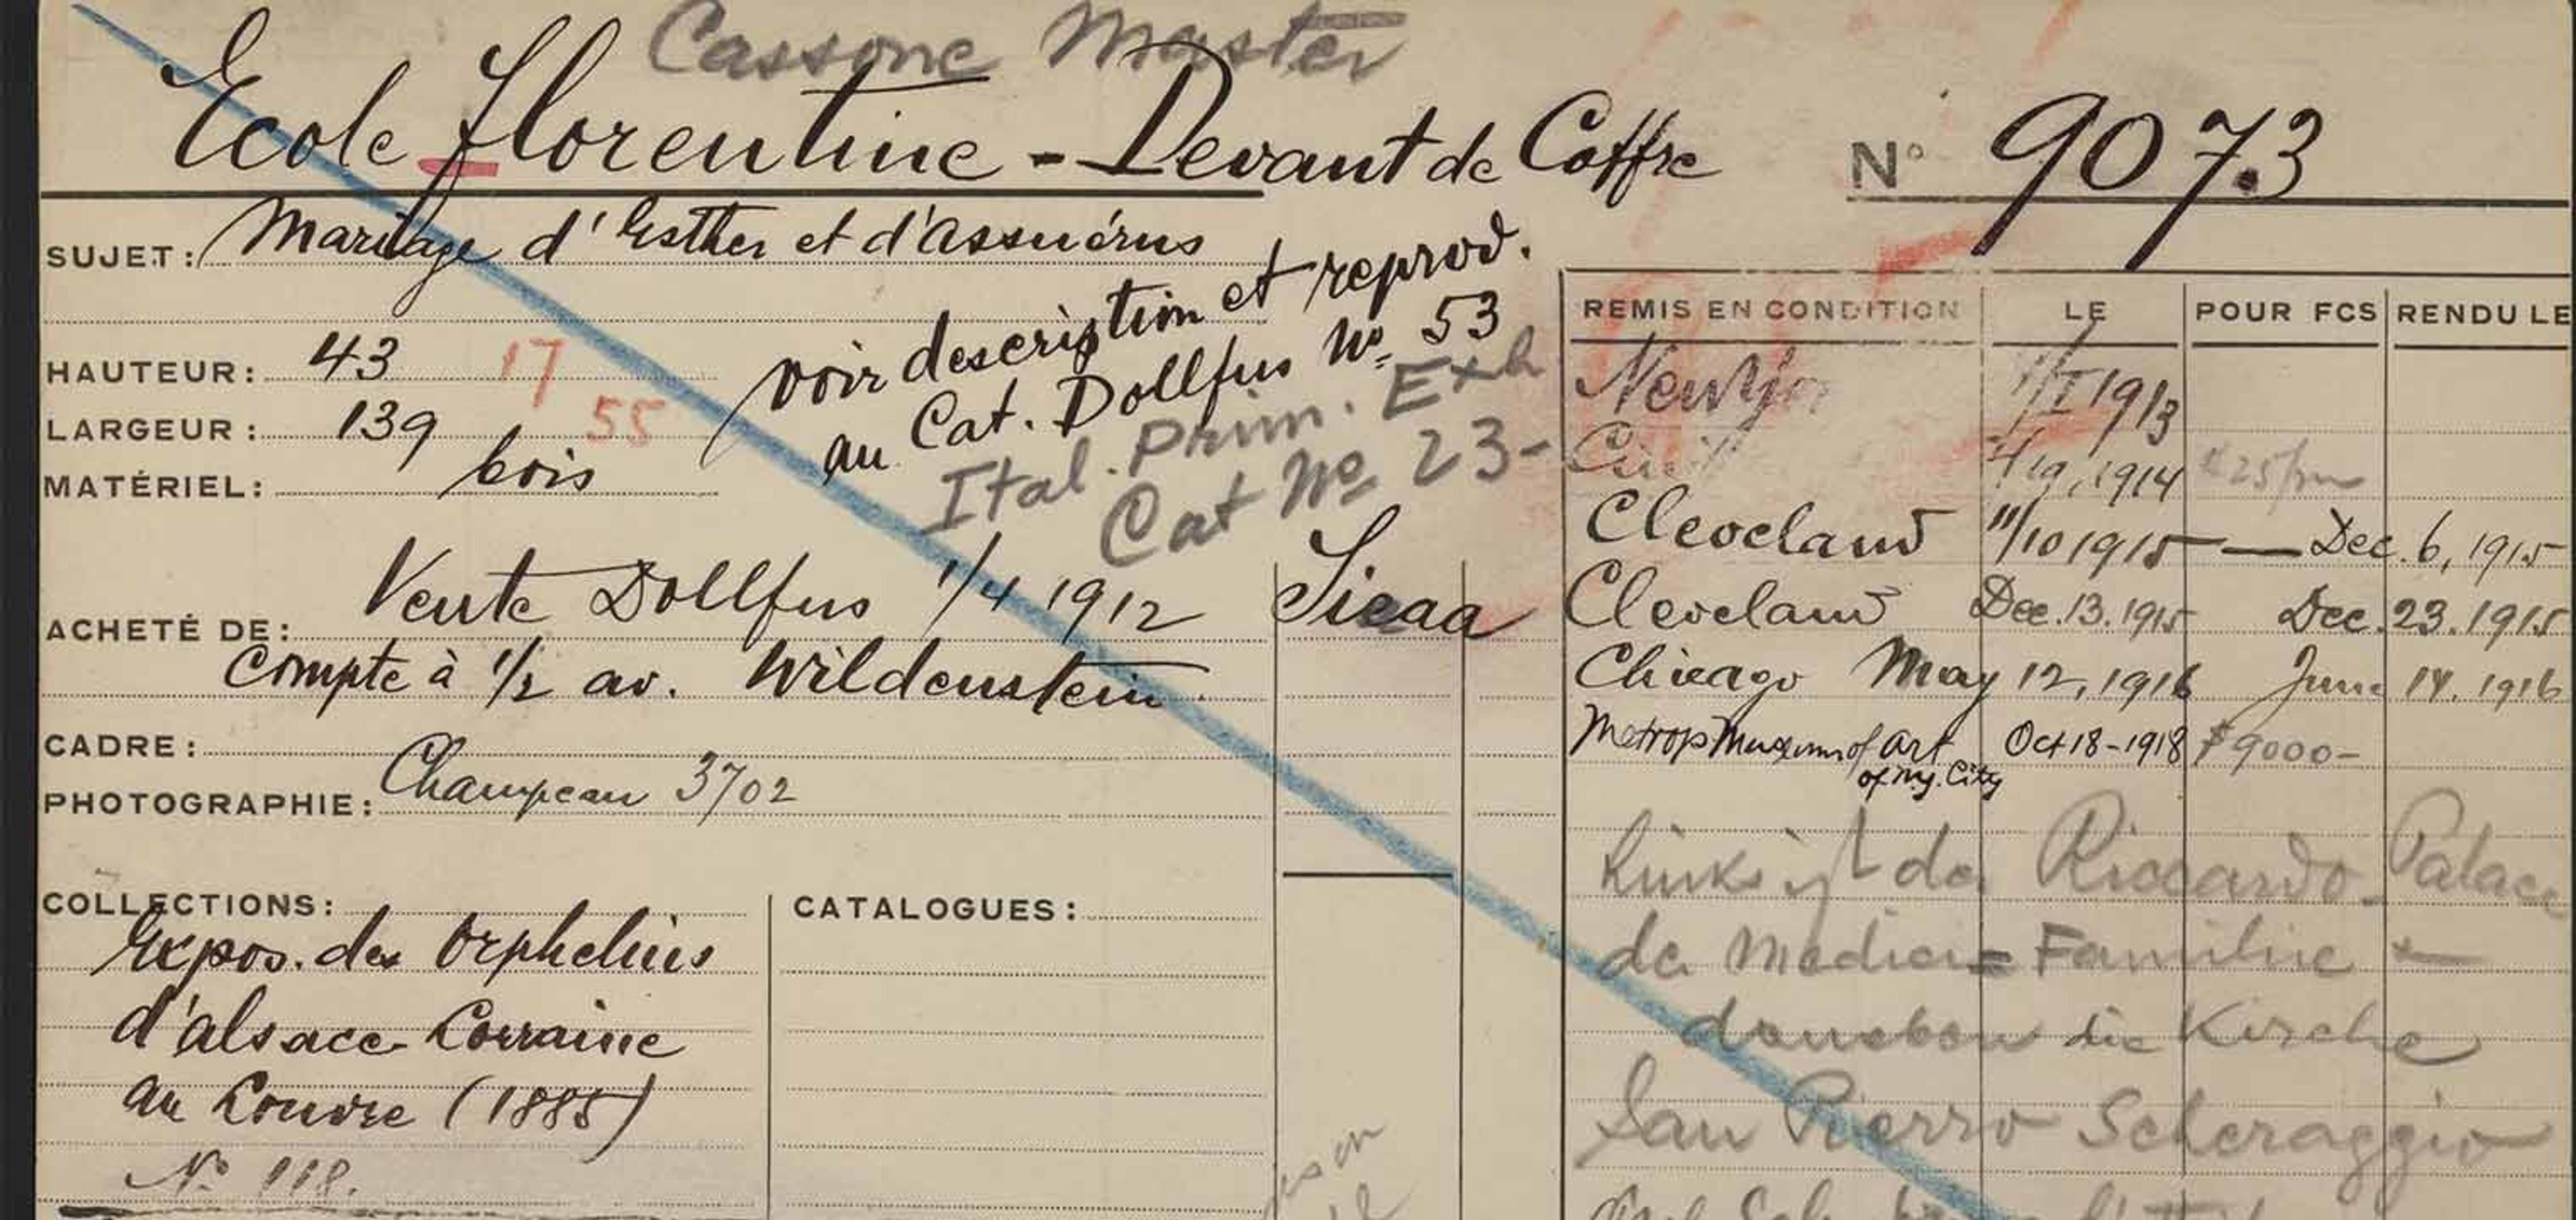 Cassone Master
Ecole florentine - Devant de Coffre
N° 9073
SUJET: Mariage d'Esther et d'Assuérus
voir description et reprod.
au Cat. Dollfus No. 53
Ital. Prim. Exh
Cat No 23-
HAUTEUR: 43 17
LARGEUR: 139 55
MATÉRIEL: bois
ACHETÉ DE: Vente Dollfus 1/4 1912
Compte à 1/2 av. Wildenstein
CADRE:
PHOTOGRAPHIE: Champeau 3702
COLLECTIONS:
Expos. des Orphelins
d'Alsace-Lorraine
au Louvre (1885)
No 118.
CATALOGUES:
REMIS EN CONDITION LE POUR FCS RENDU LE
1/I 1913
1914
Cleveland 11/10 1915 — Dec. 6, 1915
Cleveland Dec. 13. 1915 Dec. 23. 1915
Chicago May 12, 1916 June 14. 1916
Metrop Museum of Art Oct 18-1918 $9000-
of N.y. City
Links ist da Riccardo-Palace
de Medici= Familie
daneben die Kirche
San Pierro Scheraggio